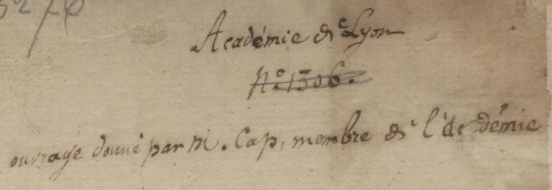 Académie de Lyon
N.º 1306.
ouvrage donné par M. Cap, membre de l'académie